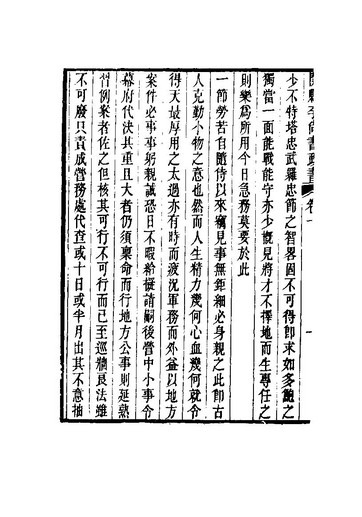 李尚書政書 卷一 一
少不特塔忠武羅忠節之智畧固不可得卽求如多鮑之
獨當一面能戰能守亦少慨見將才不擇地而生專任之
則樂爲所用今日急務莫要於此
一節勞若自隨侍以來竊見事無鉅細必身親之此卽古
人克勤小物之意也然而人生精力幾何心血幾何就令
得天最厚用之太過亦有時而疲況軍務而外益以地方
案件必事事躬親誠恐日不暇給擬請嗣後營中小事令
幕府代決其重且大者仍須稟命而行地方公事則延熟
習例案者佐之但核其可行不可行而已至巡牆良法雖
不可廢只責成營務處代查或十日或半月出其不意抽